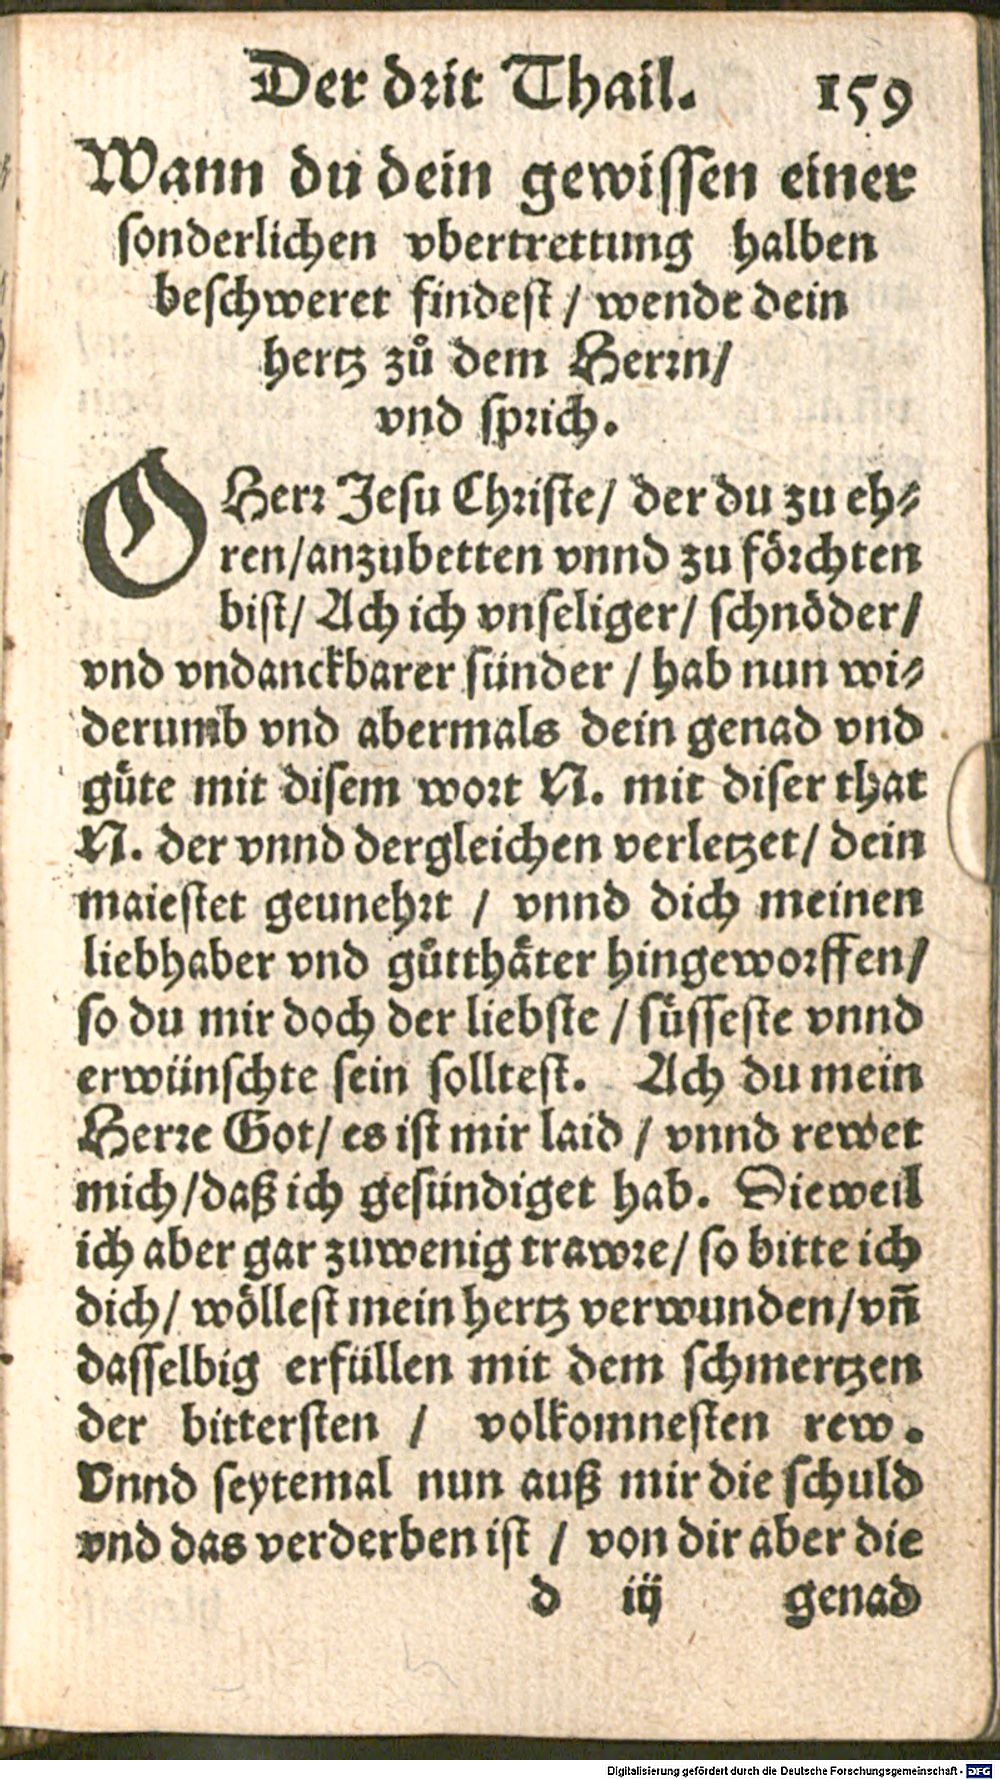 Der drit Thail. 159
Wann du dein gewissen einer
sonderlichen vbertrettung halben
beschweret findest / wende dein
hertz zů dem Herrn/
vnd sprich.
O Herr Jesu Christe/ der du zu eh⸗
ren/anzubetten vnnd zu förchten
bist/ Ach ich vnseliger/ schnöder/
vnd vndanckbarer sünder / hab nun wi⸗
derumb vnd abermals dein genad vnd
güte mit disem wort N. mit diser that
N. der vnnd dergleichen verletzet/ dein
maiestet geunehrt / vnnd dich meinen
liebhaber vnd gůtthäter hingeworffen/
so du mir doch der liebste / süsseste vnnd
erwünschte sein solltest. Ach du mein
Herre Got/ es ist mir laid / vnnd rewet
mich/daß ich gesündiget hab. Dieweil
ich aber gar zuwenig trawre/ so bitte ich
dich/ wöllest mein hertz verwunden/vn̄
dasselbig erfüllen mit dem schmertzen
der bittersten / volkomnesten rew.
Vnnd seytemal nun auß mir die schuld
vnd das verderben ist / von dir aber die
d iij genad
Digitalisierung gefördert durch die Deutsche Forschungsgemeinschaft - DFG